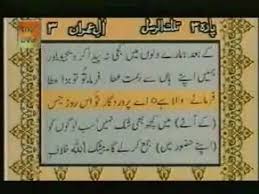 پارہ ۳ تلك الرسل اٰلِ عمران ۳
کے بعد ہمارے دلوں میں کجی نہ پیدا کر دیجیو اور
ہمیں اپنے ہاں سے نعمت عطا فرما تو تو بڑا عطا
فرمانے والا ہے ۝ اے پروردگار تو اس روز جس
(کے آنے) میں کچھ بھی شک نہیں سب لوگوں کو
(اپنے حضور میں) جمع کرلے گا۔ بیشک اللہ خلاف